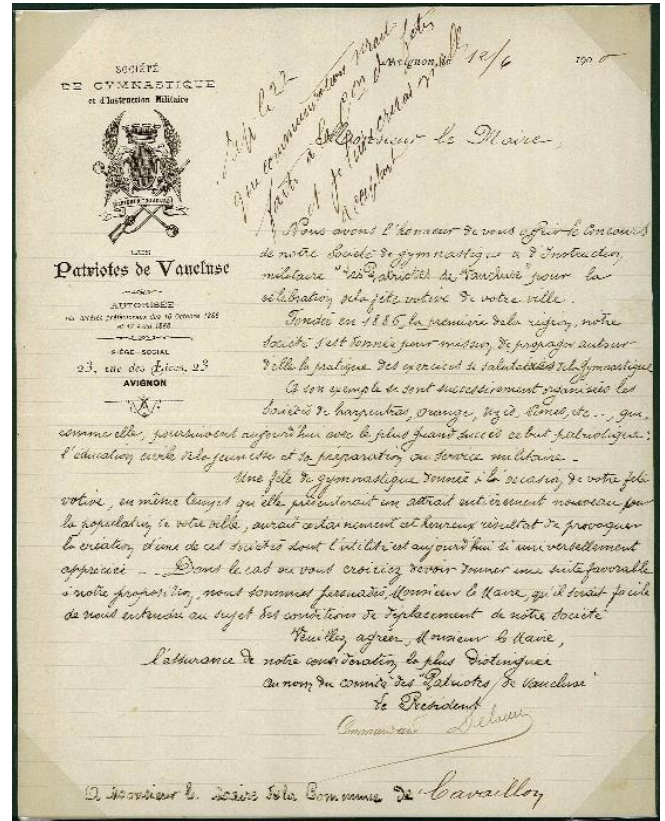 SOCIÉTÉ
DE GYMNASTIQUE
et d'Instruction Militaire
LES
Patriotes de Vaucluse
AUTORISÉE
SIÈGE SOCIAL
23, rue des Lices, 23
AVIGNON
Avignon, le 12/6 190
Monsieur le Maire,
Nous avons l'honneur de vous offrir le Concours
de notre Société de gymnastique et d'Instruction
militaire "Les Patriotes de Vaucluse" pour la
célébration de la fête votive de votre ville.
Fondée en 1886, la première de la région, notre
société s'est donnée pour mission de propager autour
d'elle la pratique des exercices si salutaires de la Gymnastique
A son exemple se sont successivement organisées les
Sociétés de Carpentras, Orange, Uzès, Nîmes, etc.., qui,
comme elle, poursuivent aujourd'hui avec le plus grand succès ce but patriotique:
l'éducation civile de la jeunesse et sa préparation au service militaire.
Une fête de gymnastique donnée à l'occasion de votre fête
votive, en même temps qu'elle présenterait un attrait entièrement nouveau pour
la population de votre ville, aurait certainement cet heureux résultat de provoquer
la création d'une de ces sociétés dont l'utilité est aujourd'hui si universellement
appréciée - Dans le cas où vous croiriez devoir donner une suite favorable
à notre proposition, nous sommes persuadés, Monsieur le Maire, qu'il serait facile
de nous entendre au sujet des conditions de déplacement de notre société
Veuillez agréer, Monsieur le Maire,
l'assurance de notre considération la plus distinguée
au nom du comité des "Patriotes de Vaucluse"
Le Président
A Monsieur le Maire de la Commune de Cavaillon